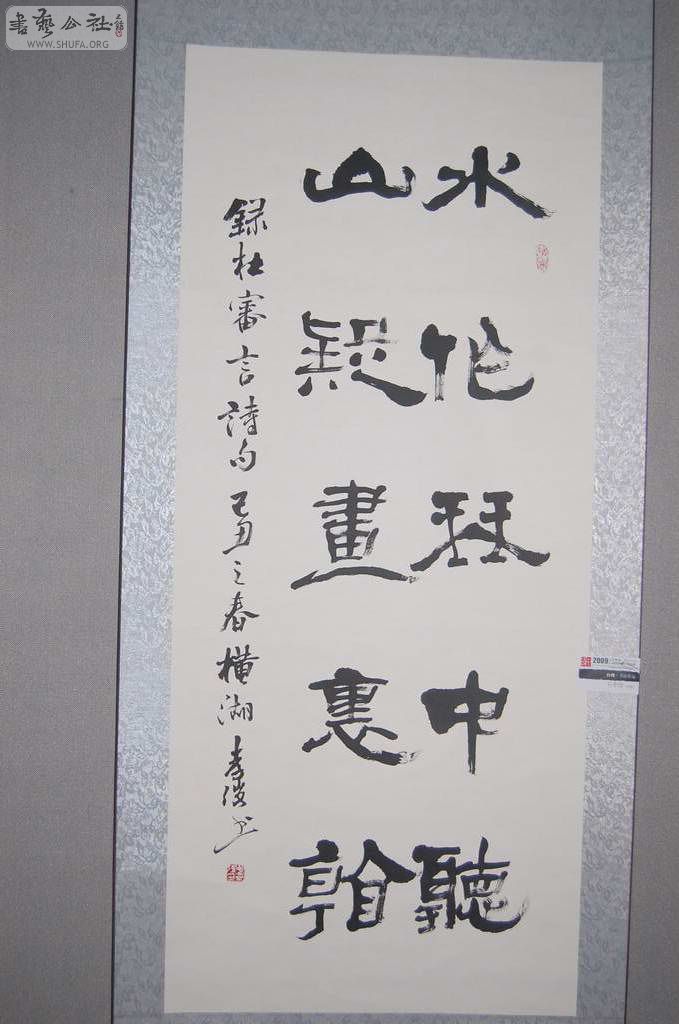 書藝公社
WWW.SHUFA.ORG
水作琴中聽
山疑畫裏看
録杜審言詩句己丑之春横湖李俊书
2009